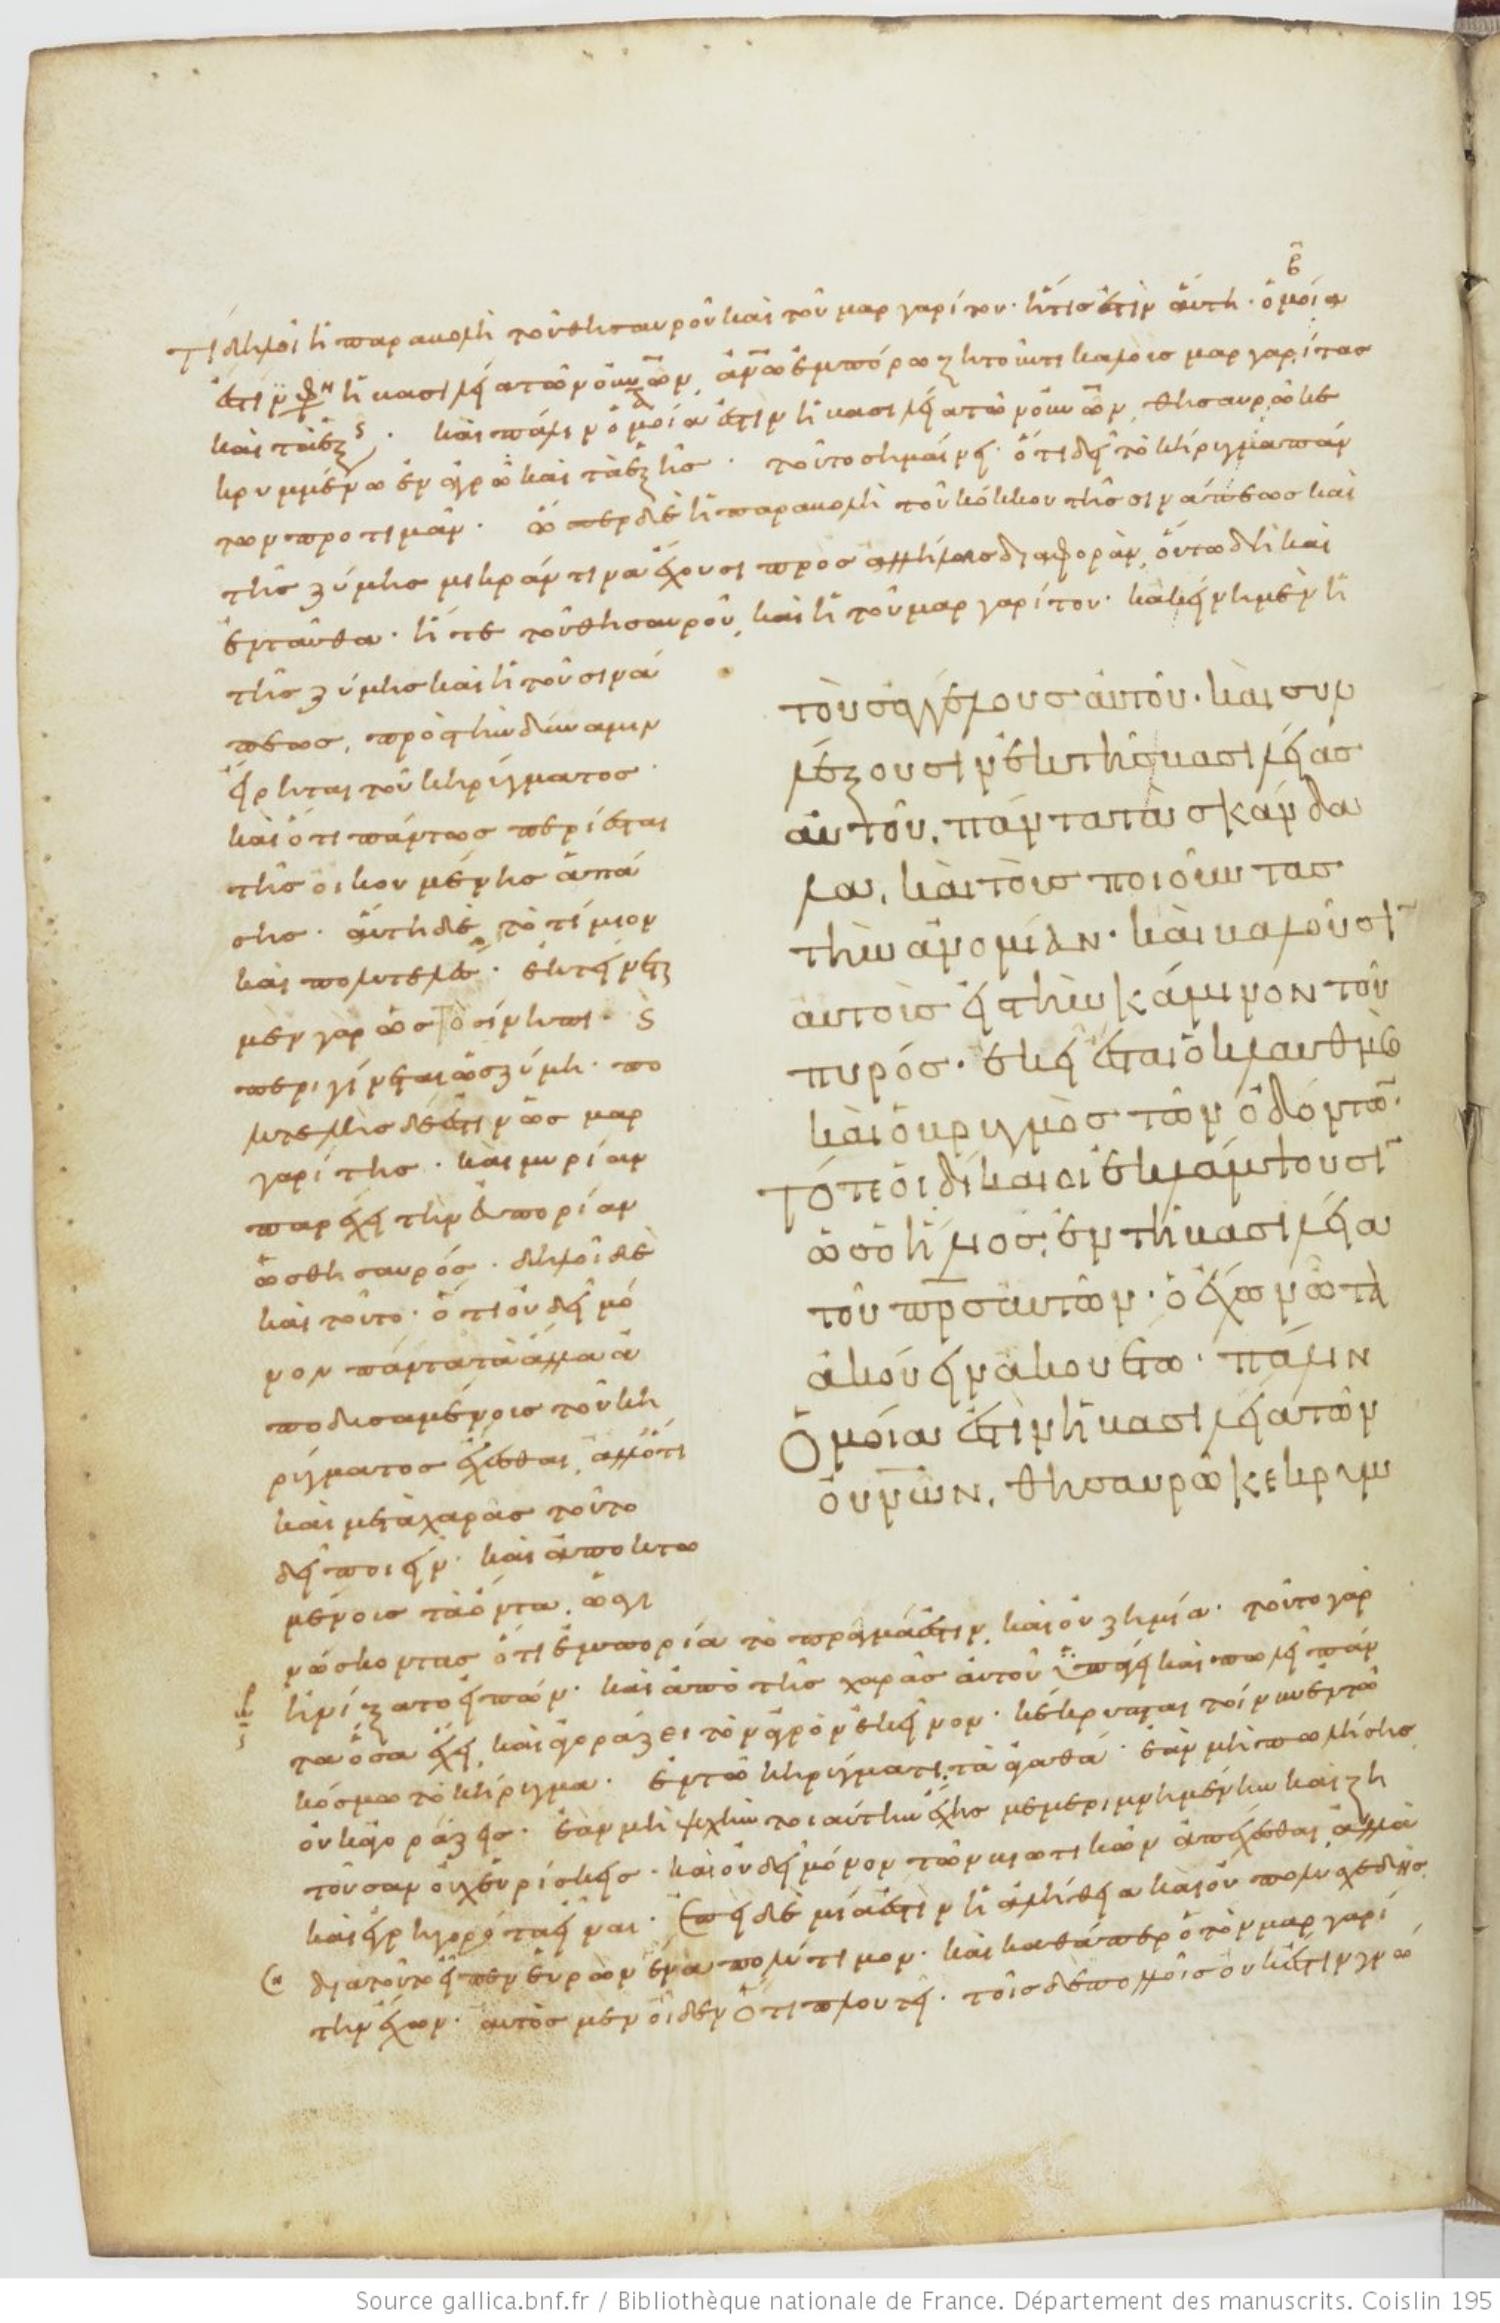 Τί δηλοῖ ἡ παραβολὴ τοῦ θησαυροῦ καὶ τοῦ μαργαρίτου· ἥτις ἐστὶν αὕτη· ὁμοία
ἐστὶν ἡ βασιλεία τῶν οὐνῶν ἀνῶ ἐμπόρω ζητοῦντι καλοὺς μαργαρίτας
καὶ τὰ ἑξ· καὶ πάλιν ὁμοία ἐστὶν ἡ βασιλεία τῶν οὐνῶν θησαυρῶ κε
κρυμμένω ἐν ἀγρῶ καὶ τὰ ἑξῆς· τοῦτο σημαίνει· ὅτι δεῖ τὸ κήρυγμα πάν
των προτιμᾶν· ὥσπερ δὲ ἡ παραβολὴ τοῦ κόκκου τῆς σινάπεως καὶ
τῆς ζύμης μικράν τινα ἔχουσι πρὸς ἀλλήλους διαφορὰν, οὕτω δὴ καὶ
ἐνταῦθα· ἥ τε τοῦ θησαυροῦ, καὶ ἡ τοῦ μαργαρίτου· κἀκείνη μὲν ἡ
τῆς ζύμης καὶ ἡ τοῦ σινά
πεως, πρὸς τὴν δύναμιν
εἴρηται τοῦ κηρύγματος·
καὶ ὅτι πάντως περιέσται
τῆς οἰκουμένης ἁπά
σης· αὕτη δὲ τὸ τίμιον
καὶ πολυτελὲς· ἐκτείνεται
μὲν γὰρ ὡς τὸ σίνηπι· καὶ
περιγίνεται ὡς ζύμη· πο
λυτελὴς δέ ἐστιν ὡς μαρ
γαρίτης· καὶ μυρίαν
παρέχει τὴν εὐπορίαν
ὡς θησαυρός· δηλοῖ δὲ
καὶ τοῦτο· ὅτι οὐ δεῖ μό
νον πάντα τὰ ἄλλα ἀ
ποδυσαμένους τοῦ κη
ρύγματος ἔχεσθαι, ἀλλ' ὅτι
καὶ μετὰ χαρᾶς τοῦτο
δεῖ ποιεῖν· καὶ ἀποκτω
μένους τὰ ὄντα, ὡς γι
νώσκοντας ὅτι ἐμπορία τὸ πρᾶγμά ἐστιν, καὶ οὐ ζημία· τοῦτο γὰρ
ἠνίξατο εἰπών· καὶ ἀπὸ τῆς χαρᾶς αὐτοῦ ὑπάγει καὶ πωλεῖ πάν
τα ὅσα ἔχει, καὶ ἀγοράζει τὸν ἀγρὸν ἐκεῖνον· κέκρυπται τοίνυν ἐν τῶ
κόσμω τὸ κήρυγμα· ἐν τῶ κηρύγματι, τὰ ἀγαθά· ἐὰν μὴ πωλήσης
οὐκ ἀγοράζεις· ἐὰν μὴ ψυχὴν τοιαύτην ἔχης μεμεριμνημένην καὶ ζη
τοῦσαν οὐχ εὑρίσκεις· καὶ οὐ δεῖ μόνον τῶν βιωτικῶν ἀπέχεσθαι, ἀλλὰ
καὶ ἐγρηγορότα εἶναι· ἐπεὶ δὲ μία ἐστὶν ἡ ἀλήθεια καὶ οὐ πολυσχεδὴς
διὰ τοῦτο εἶπεν εὑρὼν ἕνα πολύτιμον· καὶ καθάπερ ὁ τὸν μαργαρί
την ἔχων· αὐτὸς μὲν οἶδεν ὅτι πλουτεῖ· τοῖς δὲ πολλοῖς οὐκ ἔστιν γνώ
τοὺς ἀγγέλους αὐτοῦ· καὶ συλ
λέξουσιν ἐκ τῆς βασιλείας
αὐτοῦ, πάντα τὰ σκάνδα
λα, καὶ τοὺς ποιοῦντας
τὴν ἀνομίαν· καὶ βαλοῦσι
αὐτοὺς εἰς τὴν κάμινον τοῦ
πυρός· ἐκεῖ ἔσται ὁ κλαυθμὸς
καὶ ὁ βρυγμὸς τῶν ὀδόντων·
Τότε οἱ δίκαιοι ἐκλάμψουσι
ὡς ὁ ἥλιος, ἐν τῆ βασιλεία
τοῦ πρσ αὐτῶν· ὁ ἔχων ὦτα
ἀκούειν ἀκουέτω· πάλιν
Ὁμοία ἐστὶν ἡ βασιλεία τῶν
οὐνῶν, θησαυρῶ κεκρυμ
Source gallica.bnf.fr / Bibliothèque nationale de France. Département des manuscrits. Coislin 195